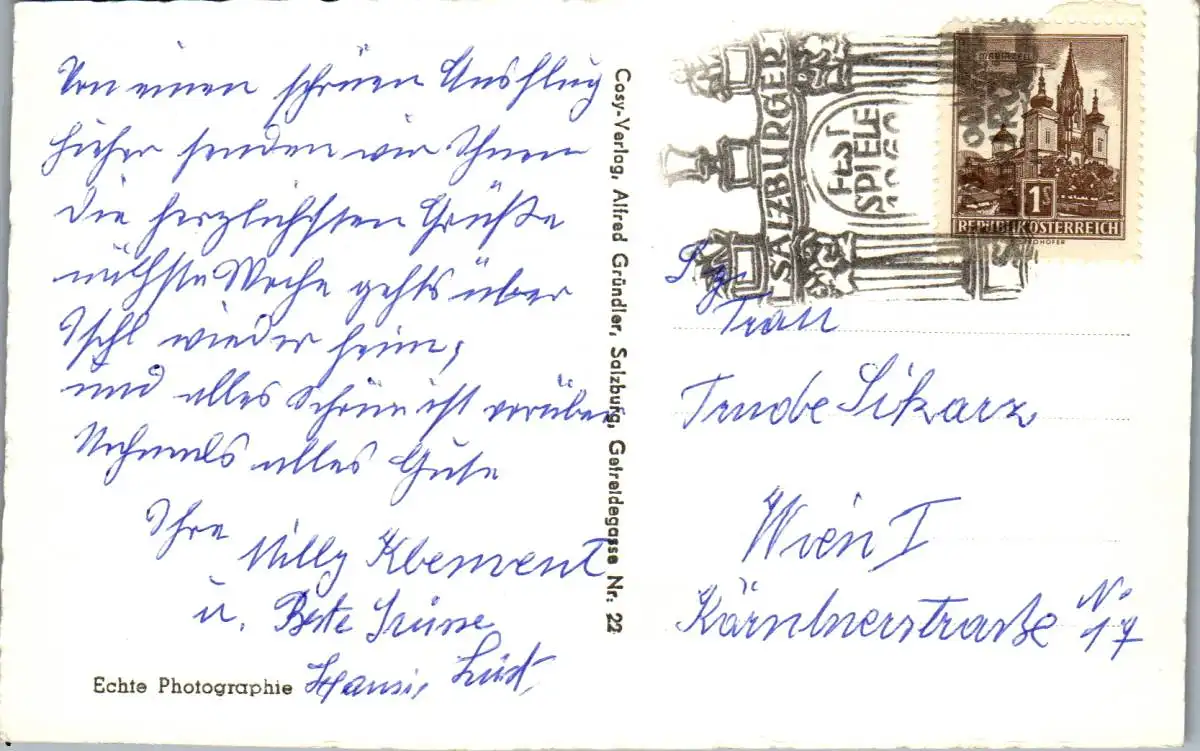 Von einen schönen Ausflug
hieher senden wir Ihnen
die herzlichsten Grüße
nächste Woche gehts über
Ischl wieder heim,
und alles Schöne ist vorüber
Nochmals alles Gute
Ihre
Milly Klement
u. Beste Grüsse
Hansi,
Echte Photographie
Cosy-Verlag, Alfred Gründler, Salzburg, Getreidegasse Nr: 22
SALZBURGER
FEST
SPIELE
MARIAZELL
1S
REPUBLIK ÖSTERREICH
S. g.
Frau
Trude Sikarz
Wien I
Kärntnerstraße No
17